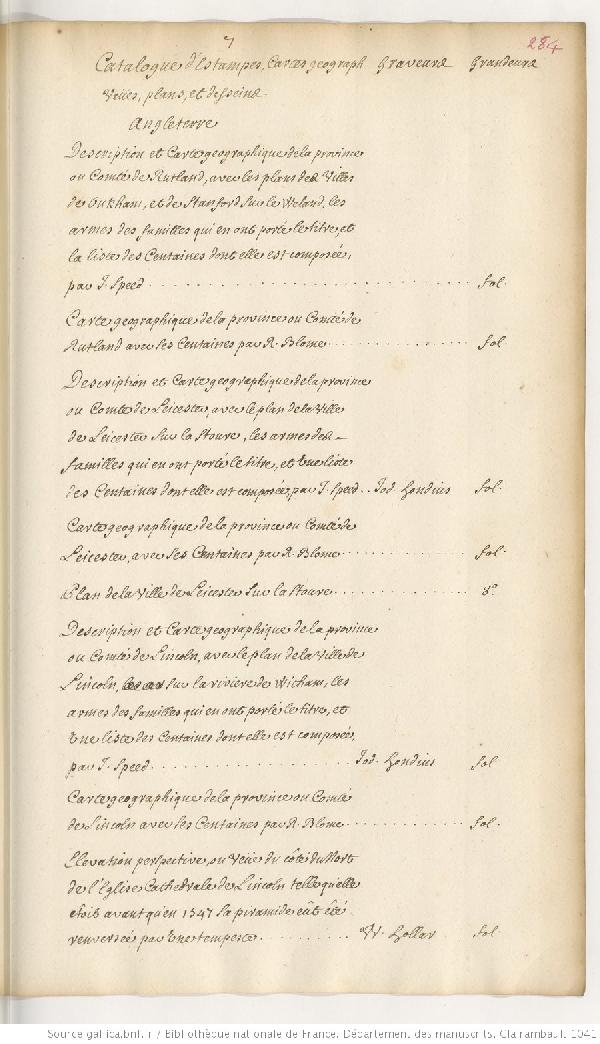 7
284
Catalogue d'Estampes, Cartes geograph Graveurs Grandeurs
Veües, plans, et desseins
Angleterre
Description et Carte geographique de la province
ou Comté de Rutland, avec les plans des Villes
de Oukham, et de Stanford sur le Weland, les
armes des familles qui en ont porté le titre, et
la liste des Centaines dont elle est composée,
par J. Speed. fol.
Carte geographique de la province ou Comté de
Rutland avec ses Centaines par R. Blome fol
Description et Carte geographique de la province
ou Comté de Leicester, avec le plan de la Ville
de Leicester sur la Stoure, les armes des
familles qui en ont porté le titre, et une liste
des Centaines dont elle est composée, par J. Speed. Jod. Hondius fol.
Carte geographique de la province ou Comté de
Leicester, avec ses Centaines par R. Blome fol.
Plan de la Ville de Leicester sur la Stoure 8°
Description et Carte geographique de la province
ou Comté de Lincoln, avec le plan de la Ville de
Lincoln, sur la riviere de Wicham, les
armes des familles qui en ont porté le titre, et
une liste des Centaines dont elle est composée,
par J. Speed. Jod. Hondius fol
Carte geographique de la province ou Comté
de Lincoln avec ses Centaines par R. Blome fol.
Elevation perspective, ou Veüe du coté du Nort
de l'Eglise Cathedrale de Lincoln telle qu'elle
etoit avant qu'en 1547 sa piramide eût été
renversée par une tempeste W. Hollar fol.
Source gallica.bnf.fr / Bibliothèque nationale de France. Département des manuscrits. Clairambault 1041